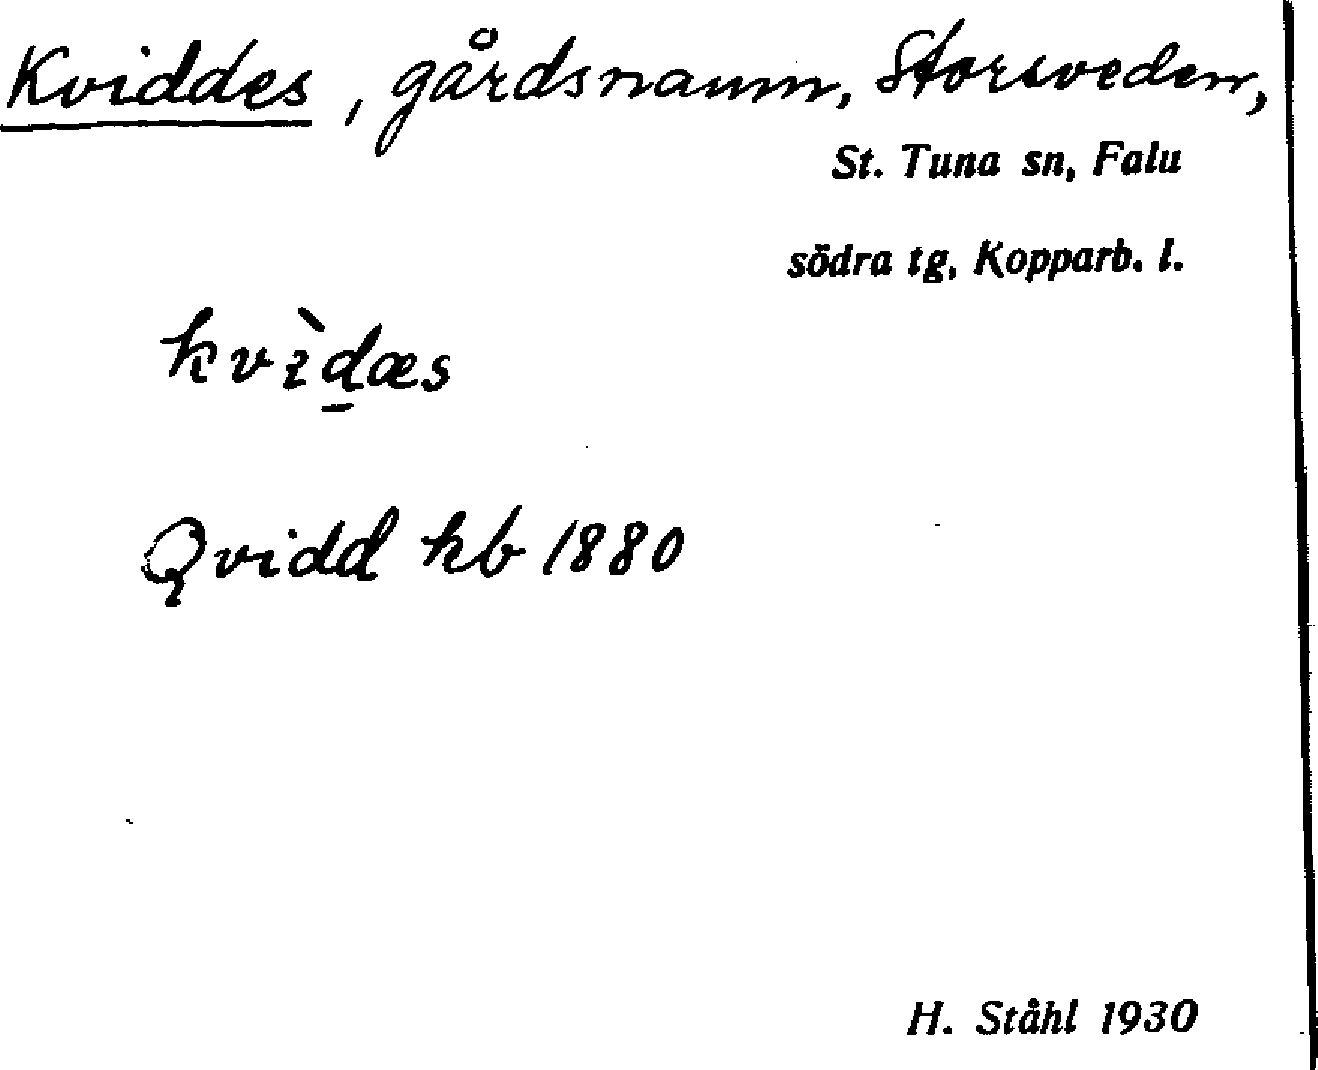 Kviddes, gårdsnamn, Storsveden,
St. Tuna sn, Falu
södra tg, Kopparb. l.
kvìd̠æs
Qvidd kb 1880
H. Ståhl 1930